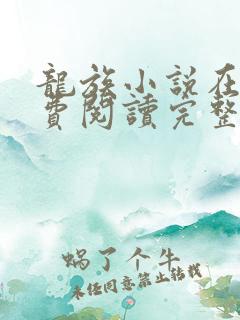 龍族小說在
費閱讀完整
蝸了个牛
未经同意禁止转载